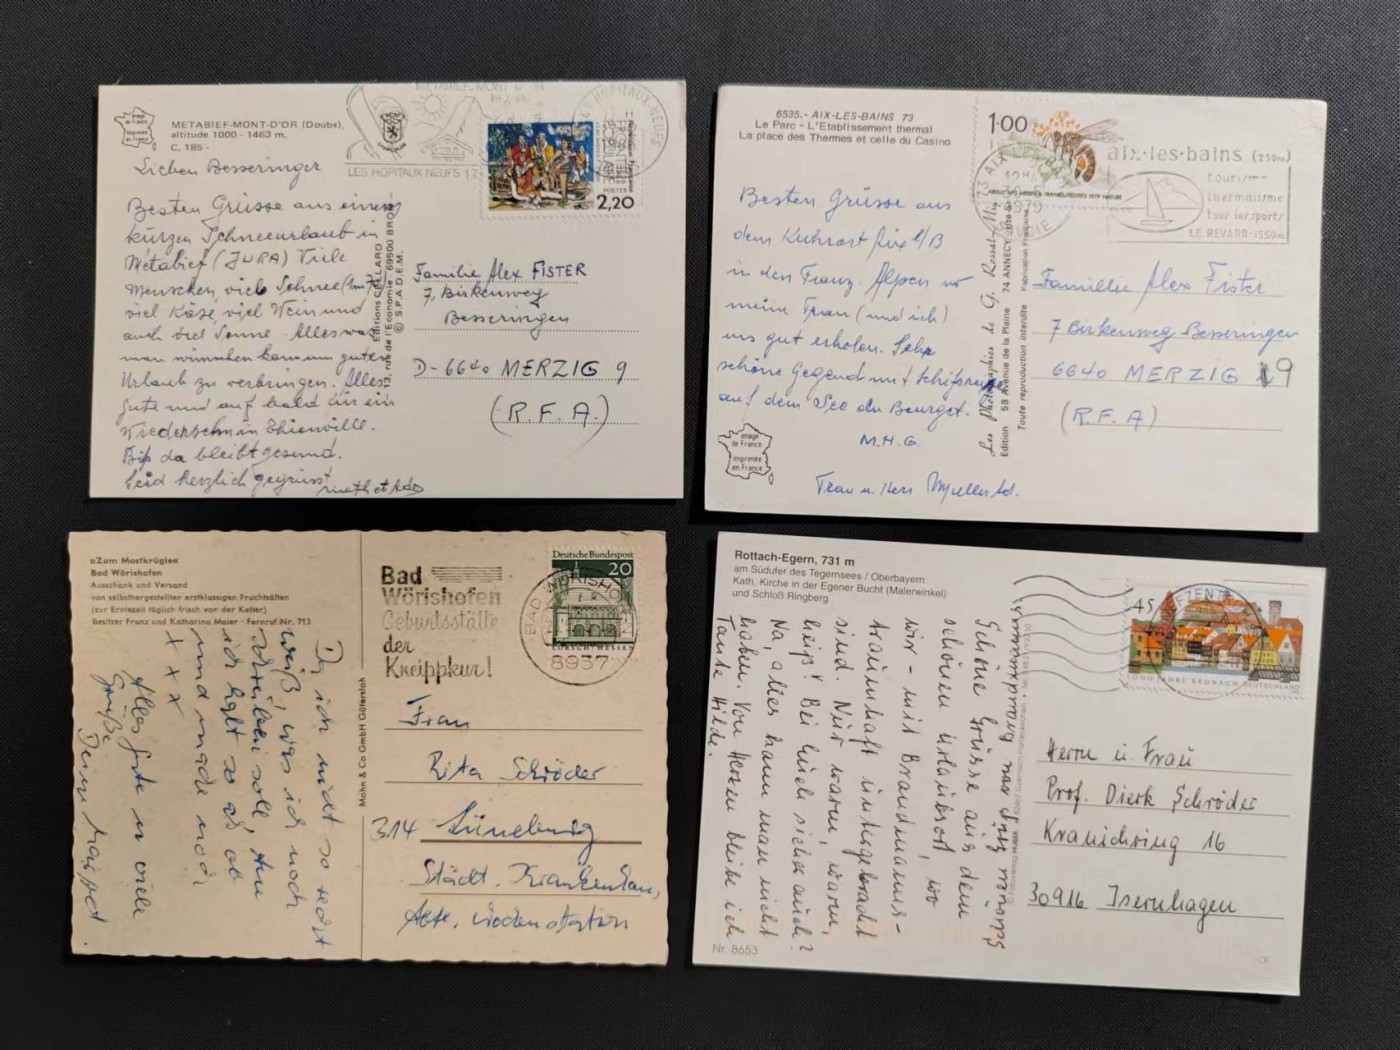 METABIEF-MONT-D'OR (Doubs),
altitude 1000 - 1463 m.
C. 185 -
Image
de France
Imprimée
en France
Lieben Besseringer
Besten Grüsse aus einem
kurzen Schneeurlaub in
Métabief (JURA) Viele
Menschen, viel Schnee
viel Käse, viel Wein und
auch viel Sonne. Alles was
man wünschen kann um guten
Urlaub zu verbringen. Alles
Gute und auf bald für ein
Wiedersehn in Thionville.
Bis da bleibt gesund.
Seid herzlich gegrüsst
Editions CELLARD
13, rue de l'Economie - 69500 BRON
© S.P.A.D.E.M.
METABIEF-MONT D'OR
LES HOPITAUX NEUFS
POSTES
2,20
Familie Alex FISTER
7, Birkenweg
Besseringen
D-6640 MERZIG 9
(R.F.A.)
6535. - AIX-LES-BAINS 73
Le Parc - L'Etablissement thermal
La place des Thermes et celle du Casino
Besten Grüsse aus
dem Kuhrort Aix l/B
in den Franz. Alpen wo
meine Frau (und ich)
uns gut erholen. Sehr
schöne Gegend mit Schifsreise
auf dem See du Bourget.
M.H.G.
Frau u. Herr
image
de France
Imprimée
en France
Les Photographies de G.
Edition 58 Avenue de la Plaine 74 ANNECY
Toute reproduction interdite
Fabrication Française
1·00
73 AIX-LES-BAINS
1979
SAVOIE
aix·les·bains (250m)
tourisme
thermalisme
tous les sports
LE REVARD-1550m
Familie Alex Fister
7 Birkenweg Besseringen
6640 MERZIG 9
(R.F.A)
»Zum Mostkrügle«
Bad Wörishofen
Ausschank und Versand
von selbsthergestellten erstklassigen Fruchtsäften
(zur Erntezeit täglich frisch von der Kelter)
Besitzer Franz und Katharina Maier - Fernruf Nr. 713
Da ich nicht so recht
weiß, was ich noch
schreiben soll, tu
ich halt so als ob
und mache noch
x x x
Alles Gute u viele
Grüße
Deine
Mohn & Co GmbH Gütersloh
Bad
Wörishofen
Geburtsstätte
der
Kneippkur!
BAD WÖRISHOFEN
8937
Deutsche Bundespost
20
LORSCH / HESSEN
Frau
Rita Schröder
314 Lüneburg
Städt. Krankenhaus,
Rottach-Egern, 731 m
am Südufer des Tegernsees / Oberbayern
Kath. Kirche in der Egener Bucht (Malerwinkel)
und Schloß Ringberg
Schöne Grüsse aus dem
schönen Urlaubsort, wo
wir - mit Brandmanns -
traumhaft untergebracht
sind. Nur warm, warm,
heiß! Bei Euch sicher auch?
Na, alles kann man nicht
haben. Von Herzen bleibe ich
Tante Hilde.
Nr. 8653
45
1000 JAHRE KRONACH
DEUTSCHLAND
Herrn u. Frau
Prof. Dierk Schröder
Kranichring 16
30916 Isernhagen